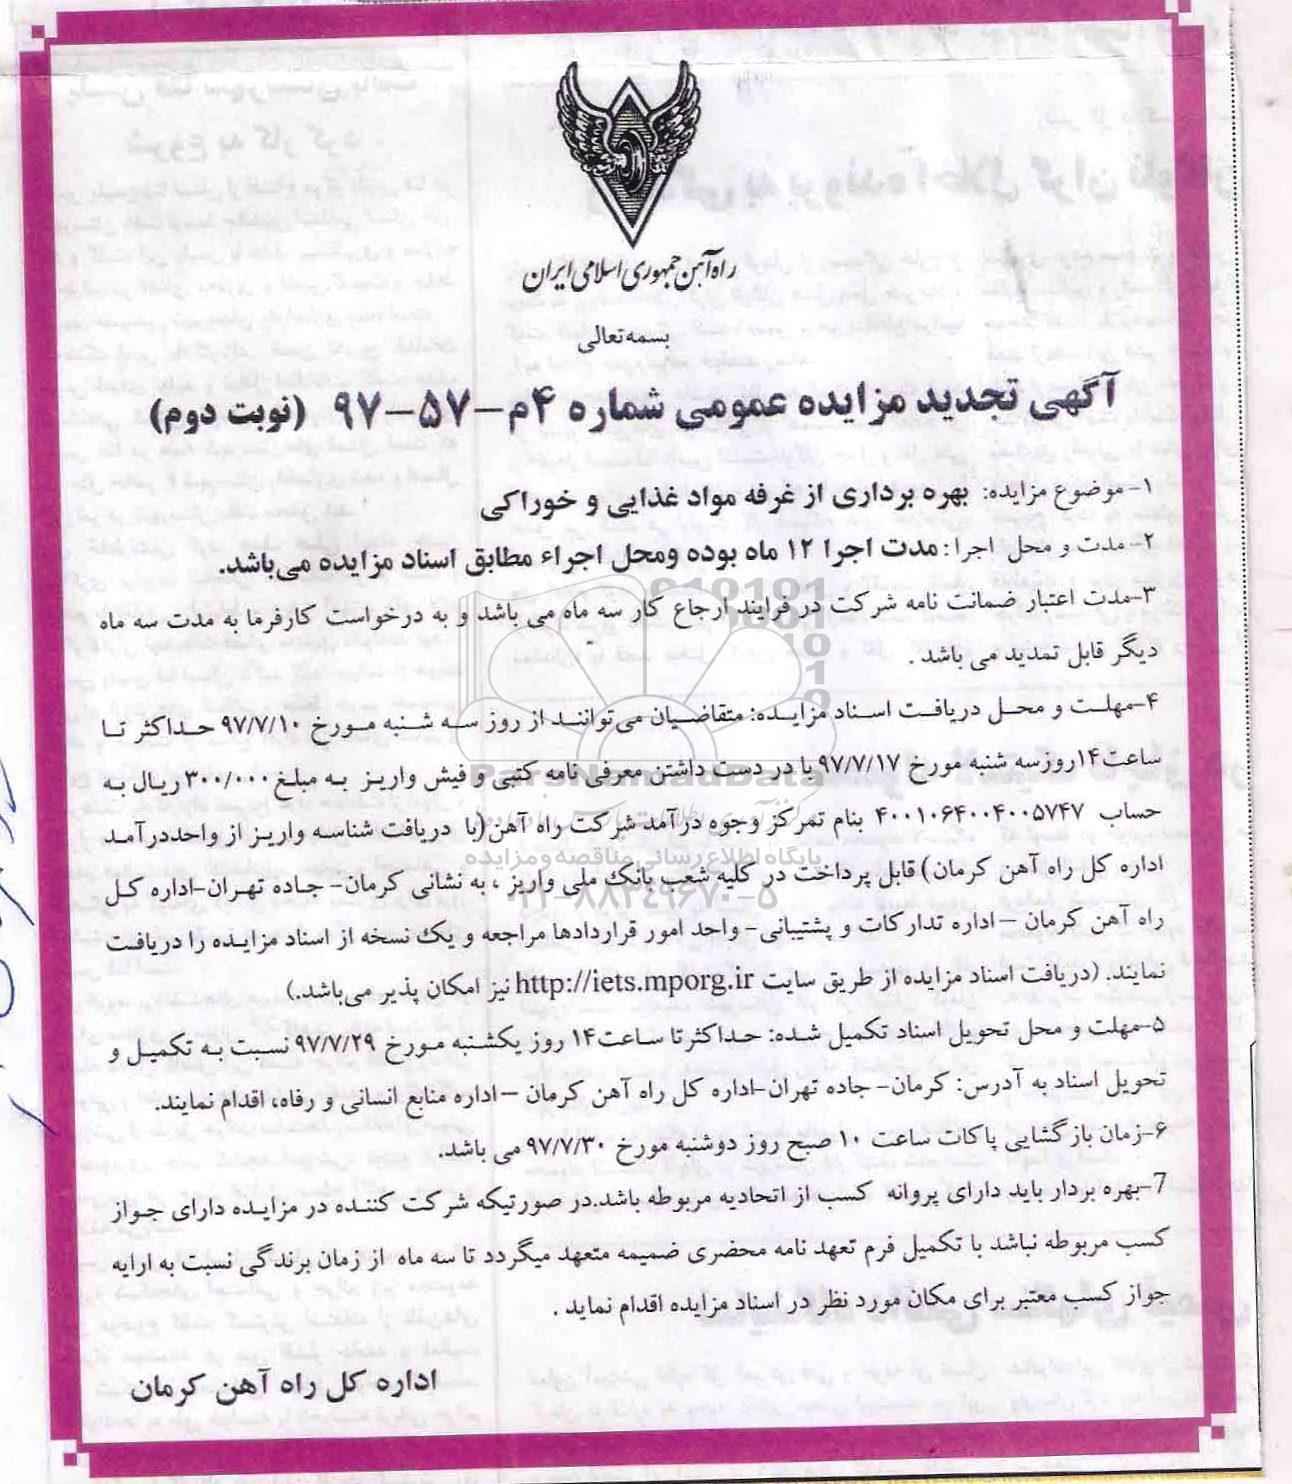 راه آهن جمهوری اسلامی ایران
بسمه تعالی
آگهی تجدید مزایده عمومی شماره ۴م-۵۷-۹۷ (نوبت دوم)
۱-موضوع مزایده: بهره برداری از غرفه مواد غذایی و خوراکی
۲-مدت و محل اجرا: مدت اجرا ۱۲ ماه بوده ومحل اجراء مطابق اسناد مزایده می‌باشد.
۳-مدت اعتبار ضمانت نامه شرکت در فرایند ارجاع کار سه ماه می باشد و به درخواست کارفرما به مدت سه ماه
دیگر قابل تمدید می باشد .
۴-مهلت و محل دریافت اسناد مزایده: متقاضیان می‌توانند از روز سه شنبه مورخ ۹۷/۷/۱۰ حداکثر تا
ساعت۱۴روزسه شنبه مورخ ۹۷/۷/۱۷با در دست داشتن معرفی نامه کتبی و فیش واریز به مبلغ۳۰۰/۰۰۰ریال به
حساب ۴۰۰۱۰۶۴۰۰۴۰۰۵۷۴۷ بنام تمرکز وجوه درآمد شرکت راه آهن(با دریافت شناسه واریز از واحددرآمد
اداره کل راه آهن کرمان) قابل پرداخت در کلیه شعب بانک ملی واریز ، به نشانی کرمان- جاده تهران-اداره کل
راه آهن کرمان –اداره تدارکات و پشتیبانی- واحد امور قراردادها مراجعه و یک نسخه از اسناد مزایده را دریافت
نمایند. (دریافت اسناد مزایده از طریق سایت http://iets.mporg.ir نیز امکان پذیر می‌باشد.)
۵-مهلت و محل تحویل اسناد تکمیل شده: حداکثرتا ساعت۱۴ روز یکشنبه مورخ ۹۷/۷/۲۹ نسبت به تکمیل و
تحویل اسناد به آدرس: کرمان- جاده تهران-اداره کل راه آهن کرمان –اداره منابع انسانی و رفاه، اقدام نمایند.
۶-زمان بازگشایی پاکات ساعت ۱۰ صبح روز دوشنبه مورخ ۹۷/۷/۳۰ می باشد.
7-بهره بردار باید دارای پروانه کسب از اتحادیه مربوطه باشد.در صورتیکه شرکت کننده در مزایده دارای جواز
کسب مربوطه نباشد با تکمیل فرم تعهد نامه محضری ضمیمه متعهد میگردد تا سه ماه از زمان برندگی نسبت به ارایه
جواز کسب معتبر برای مکان مورد نظر در اسناد مزایده اقدام نماید .
اداره کل راه آهن کرمان
ParsNamadData
پایگاه اطلاع رسانی مناقصه و مزایده
۰۲۱-۸۸۳۴۹۶۷۰-۵